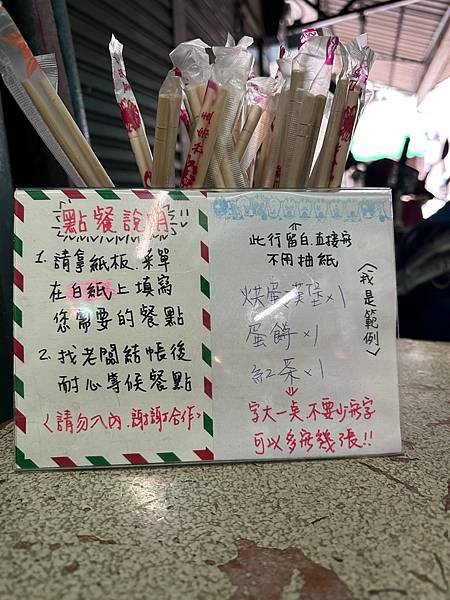 點餐說明!!
1. 請拿紙板.菜單
在白紙上填寫
您需要的餐點
2. 找老闆結帳後
耐心等候餐點
<請勿入內.謝謝合作>
此行留白.直接寫
不用抽紙
烘蛋漢堡×1
蛋餅×1
紅茶×1
<我是範例>
字大一點 不要少寫字
可以多寫幾張!!